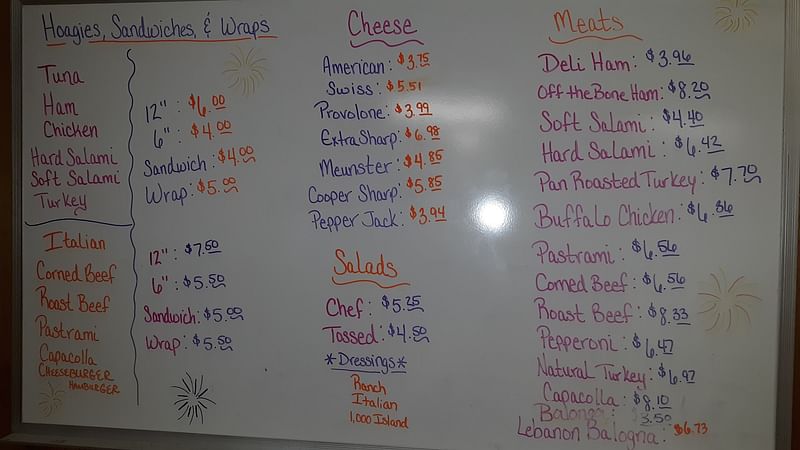 Hoagies, Sandwiches, & Wraps
Tuna
Ham
Chicken
Hard Salami
Soft Salami
Turkey
12" : $6.00
6" : $4.00
Sandwich: $4.00
Wrap: $5.00
Italian
Corned Beef
Roast Beef
Pastrami
Capacolla
CHEESEBURGER
HAMBURGER
12" : $7.50
6" : $5.50
Sandwich: $5.00
Wrap: $5.50
Cheese
American: $3.75
Swiss: $5.51
Provolone: $3.99
Extra Sharp: $6.98
Meunster: $4.85
Cooper Sharp: $5.85
Pepper Jack: $3.94
Salads
Chef: $5.25
Tossed: $4.50
*Dressings*
Ranch
Italian
1,000 Island
Meats
Deli Ham: $3.96
Off the Bone Ham: $8.20
Soft Salami: $4.40
Hard Salami: $6.42
Pan Roasted Turkey: $7.70
Buffalo Chicken: $6.86
Pastrami: $6.56
Corned Beef: $6.56
Roast Beef: $8.33
Pepperoni: $6.47
Natural Turkey: $6.97
Capacolla: $8.10
3.50
Lebanon Balogna: $6.73